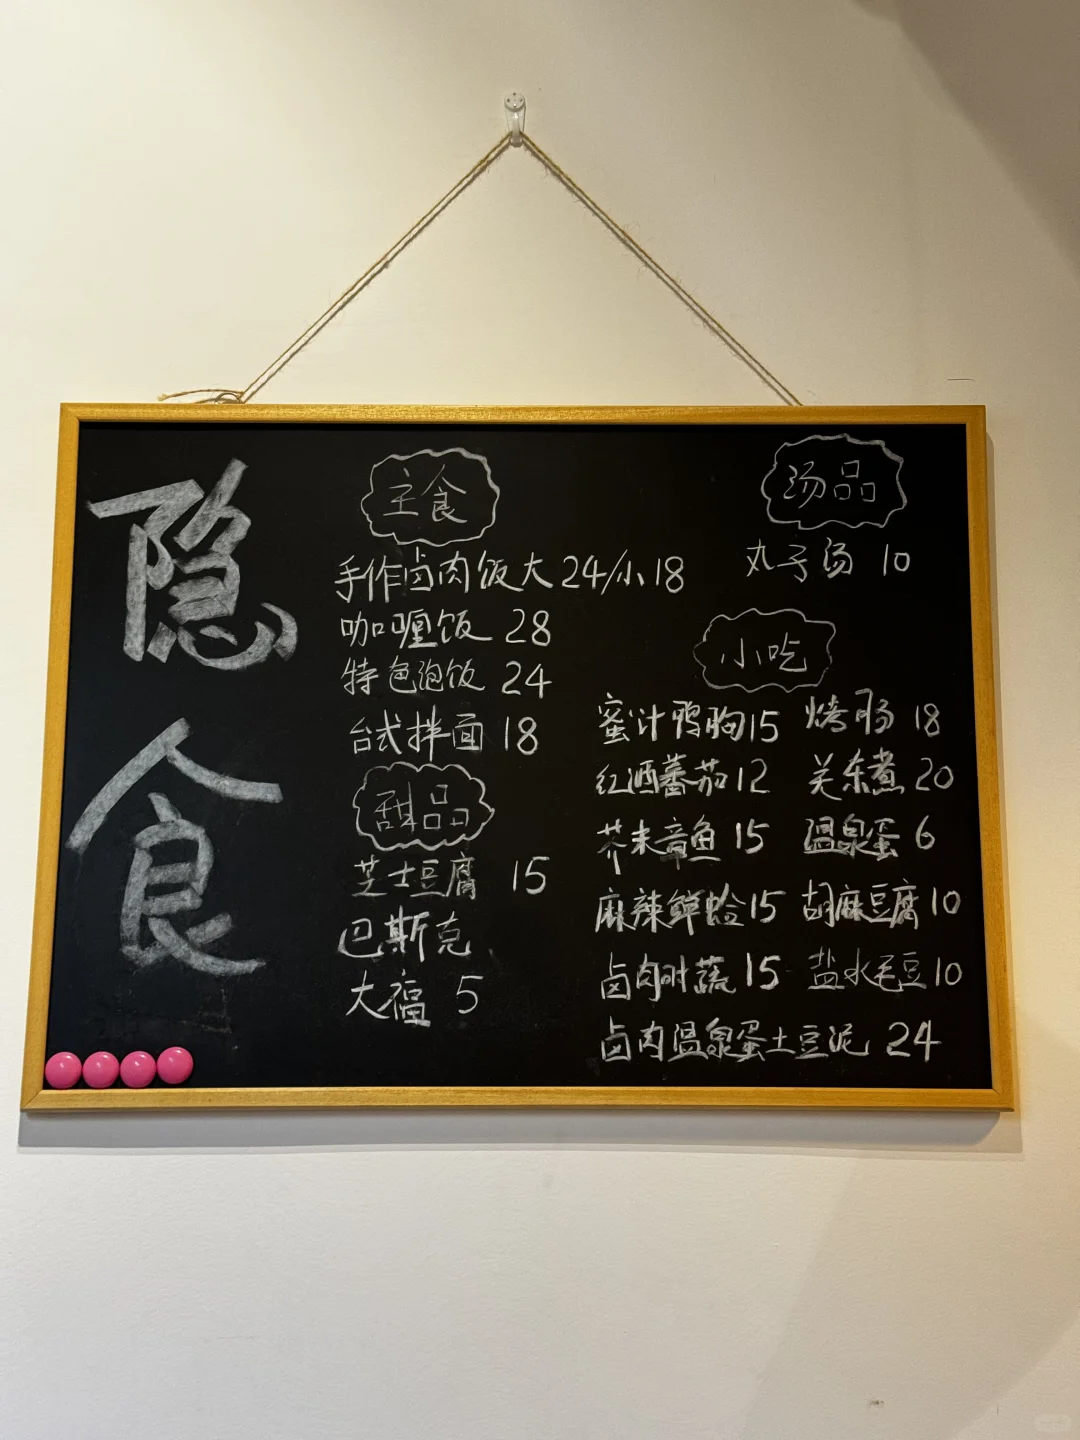 隐食
主食
手作卤肉饭大24/小18
咖喱饭 28
特色泡饭 24
台式拌面 18
甜品
芝士豆腐 15
巴斯克
大福 5
汤品
丸子汤 10
小吃
蜜汁鸭胸15 烤肠 18
红酒蕃茄12 关东煮 20
芥末章鱼 15 温泉蛋 6
麻辣鲜蛤15 胡麻豆腐10
卤肉时蔬 15 盐水毛豆10
卤肉温泉蛋土豆泥 24